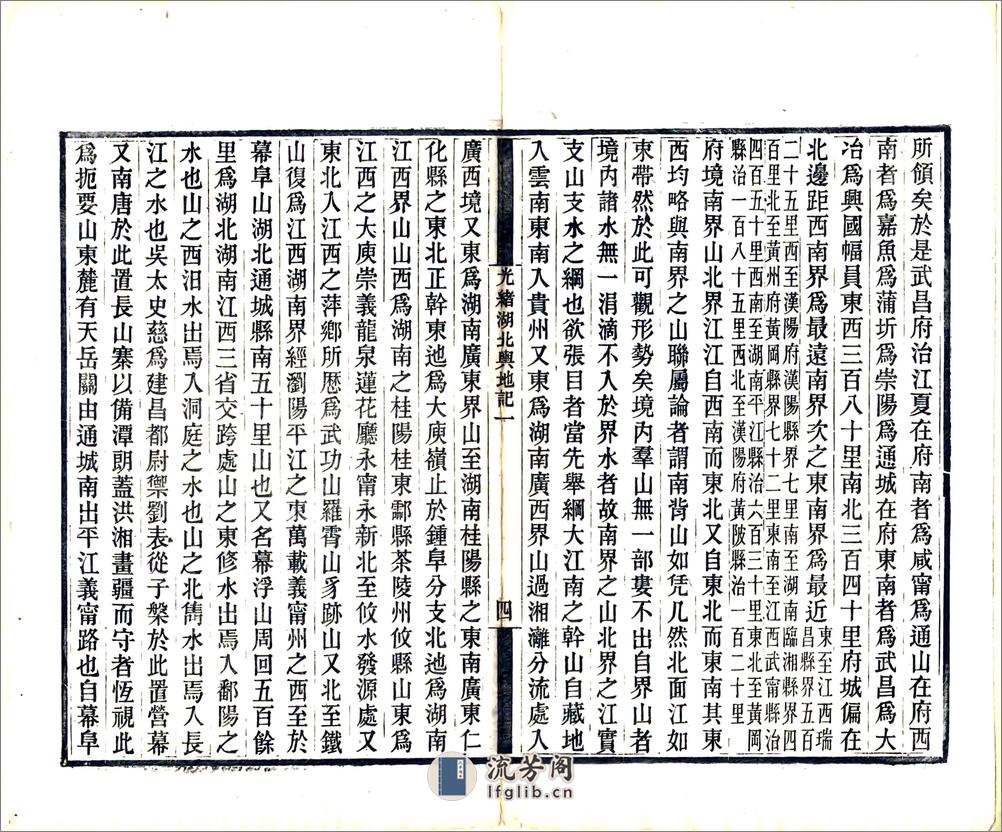 所領矣於是武昌府治江夏在府南者爲咸甯爲通山在府西
南者爲嘉魚爲蒲圻爲崇陽爲通城在府東南者爲武昌爲大
冶爲興國幅員東西三百八十里南北三百四十里府城偏在
北邊距西南界爲最遠南界次之東南界爲最近東至江西瑞
昌縣界五百
二十五里西至漢陽府漢陽縣界七里南至湖南臨湘縣界四
百里北至黃州府黃岡縣界七十二里東南至江西武甯縣治
四百五十里西南至湖南平江縣治六百三十里東北至黃岡
縣治一百八十五里西北至漢陽府黃陂縣治一百二十里
府境南界山北界江江自西南而東北又自東北而東南其東
西均略與南界之山聯屬論者謂南背山如凭几然北面江如
束帶然於此可觀形勢矣境內羣山無一部婁不出自界山者
境內諸水無一涓滴不入於界水者故南界之山北界之江實
支山支水之綱也欲張目者當先舉綱大江南之幹山自藏地
入雲南東南入貴州又東爲湖南廣西界山過湘灕分流處入
光緒湖北輿地記一
四
廣西境又東爲湖南廣東界山至湖南桂陽縣之東南廣東仁
化縣之東北正幹東迆爲大庾嶺止於鍾阜分支北迆爲湖南
江西界山山西爲湖南之桂陽桂東酃縣茶陵州攸縣山東爲
江西之大庾崇義龍泉蓮花廳永甯永新北至攸水發源處又
東北入江西之萍鄉所歷爲武功山羅霄山豸跡山又北至鐵
山復爲江西湖南界經瀏陽平江之東萬載義甯州之西至於
幕阜山湖北通城縣南五十里山也又名幕浮山周回五百餘
里爲湖北湖南江西三省交跨處山之東修水出焉入鄱陽之
水也山之西汨水出焉入洞庭之水也山之北雋水出焉入長
江之水也吳太史慈爲建昌都尉禦劉表從子磐於此置營幕
又南唐於此置長山寨以備潭朗蓋洪湘畫疆而守者恆視此
爲扼要山東麓有天岳關由通城南出平江義甯路也自幕阜
流芳阁
lfglib.cn